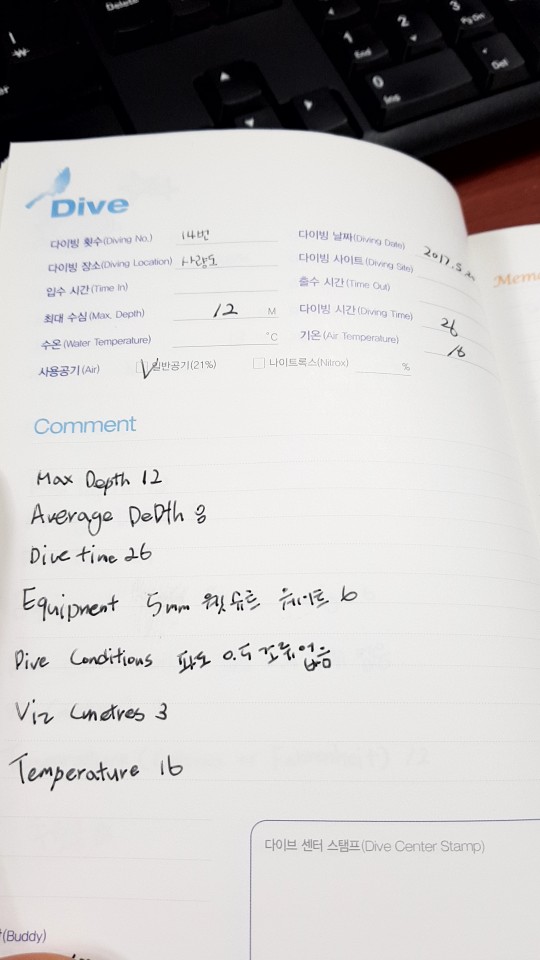 Delete
1
End
2
3
Pg Dn
0
Ins
Del
₩
Dive
다이빙 횟수(Diving No.) 14번
다이빙 날짜(Diving Date) 2017.5
다이빙 장소(Diving Location) 사량도
다이빙 사이트(Diving Site)
입수 시간(Time In)
출수 시간(Time Out)
최대 수심(Max. Depth) 12 M
다이빙 시간(Diving Time) 26
수온(Water Temperature) °C
기온(Air Temperature) 16
사용공기(Air) 일반공기(21%) 나이트록스(Nitrox) %
Memo
Comment
Max Depth 12
Average Depth 8
Dive time 26
Equipment 5mm 웻슈트 웨이트 6
Dive Conditions 파도 0.5 조류없음
Viz (metres 3
Temperature 16
다이브 센터 스탬프(Dive Center Stamp)
(Buddy)